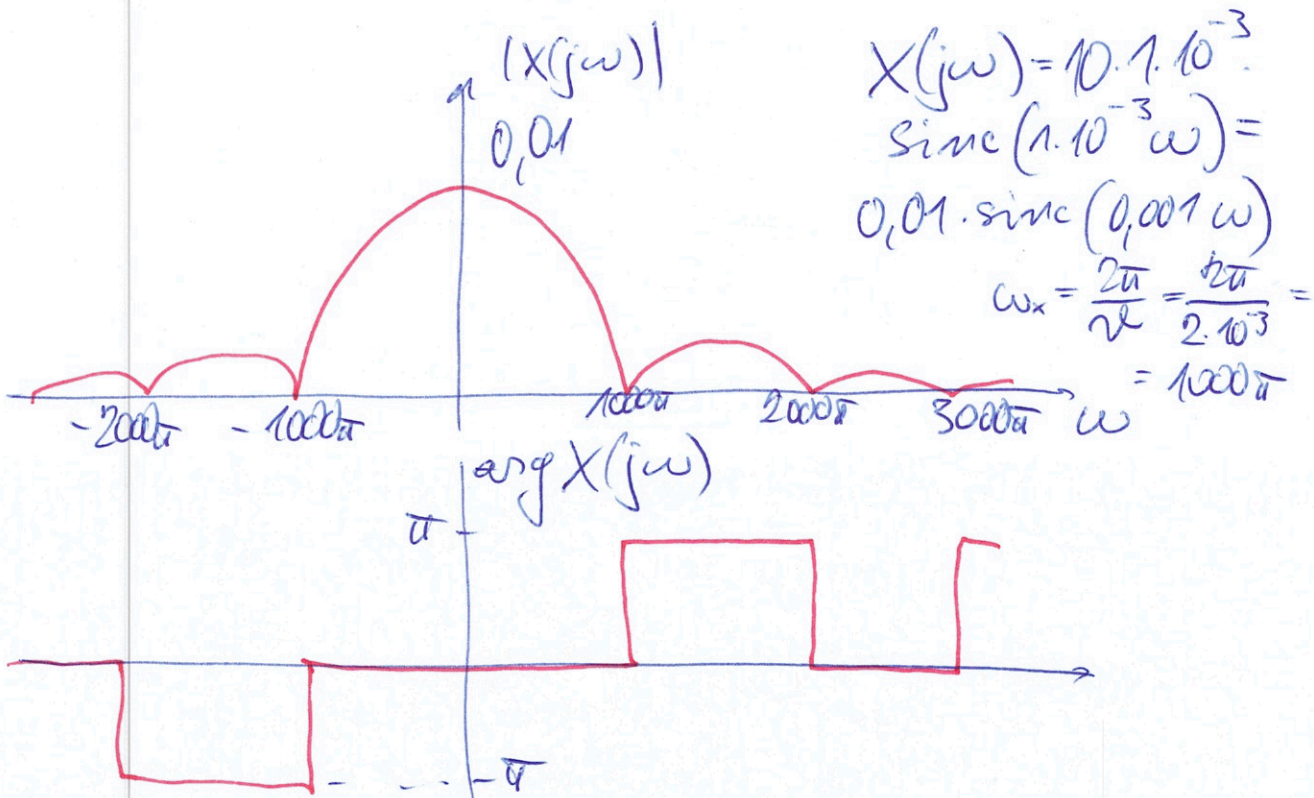 |X(jω)|
0,01
X(jω) = 10.1.10⁻³.
sinc(1.10⁻³ω) =
0,01.sinc(0,001ω)
ωₓ = 2π/ϑ = 2π/2.10⁻³ =
= 1000π
-2000π -1000π 1000π 2000π 3000π ω
arg X(jω)
π
-π